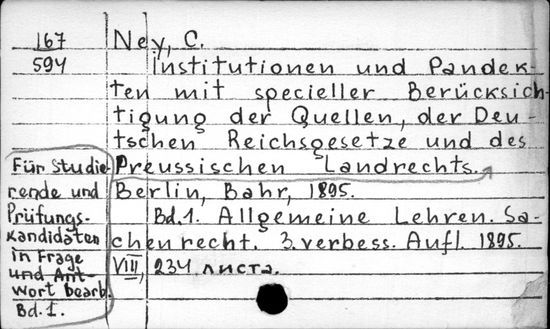 167
594
Ney, C.
Institutionen und Pandek-
ten mit specieller Berücksich-
tigung der Quellen, der Deu-
tschen Reichsgesetze und des
Preussischen Landrechts.
Berlin, Bahr, 1895.
Bd.1. Allgemeine Lehren. Sa-
chenrecht. 3. verbess. Aufl. 1895.
VIII, 234 листа.
Für Studie-
rende und
Prüfungs-
kandidaten
in Frage
und Ant-
wort bearb.
Bd. 1.